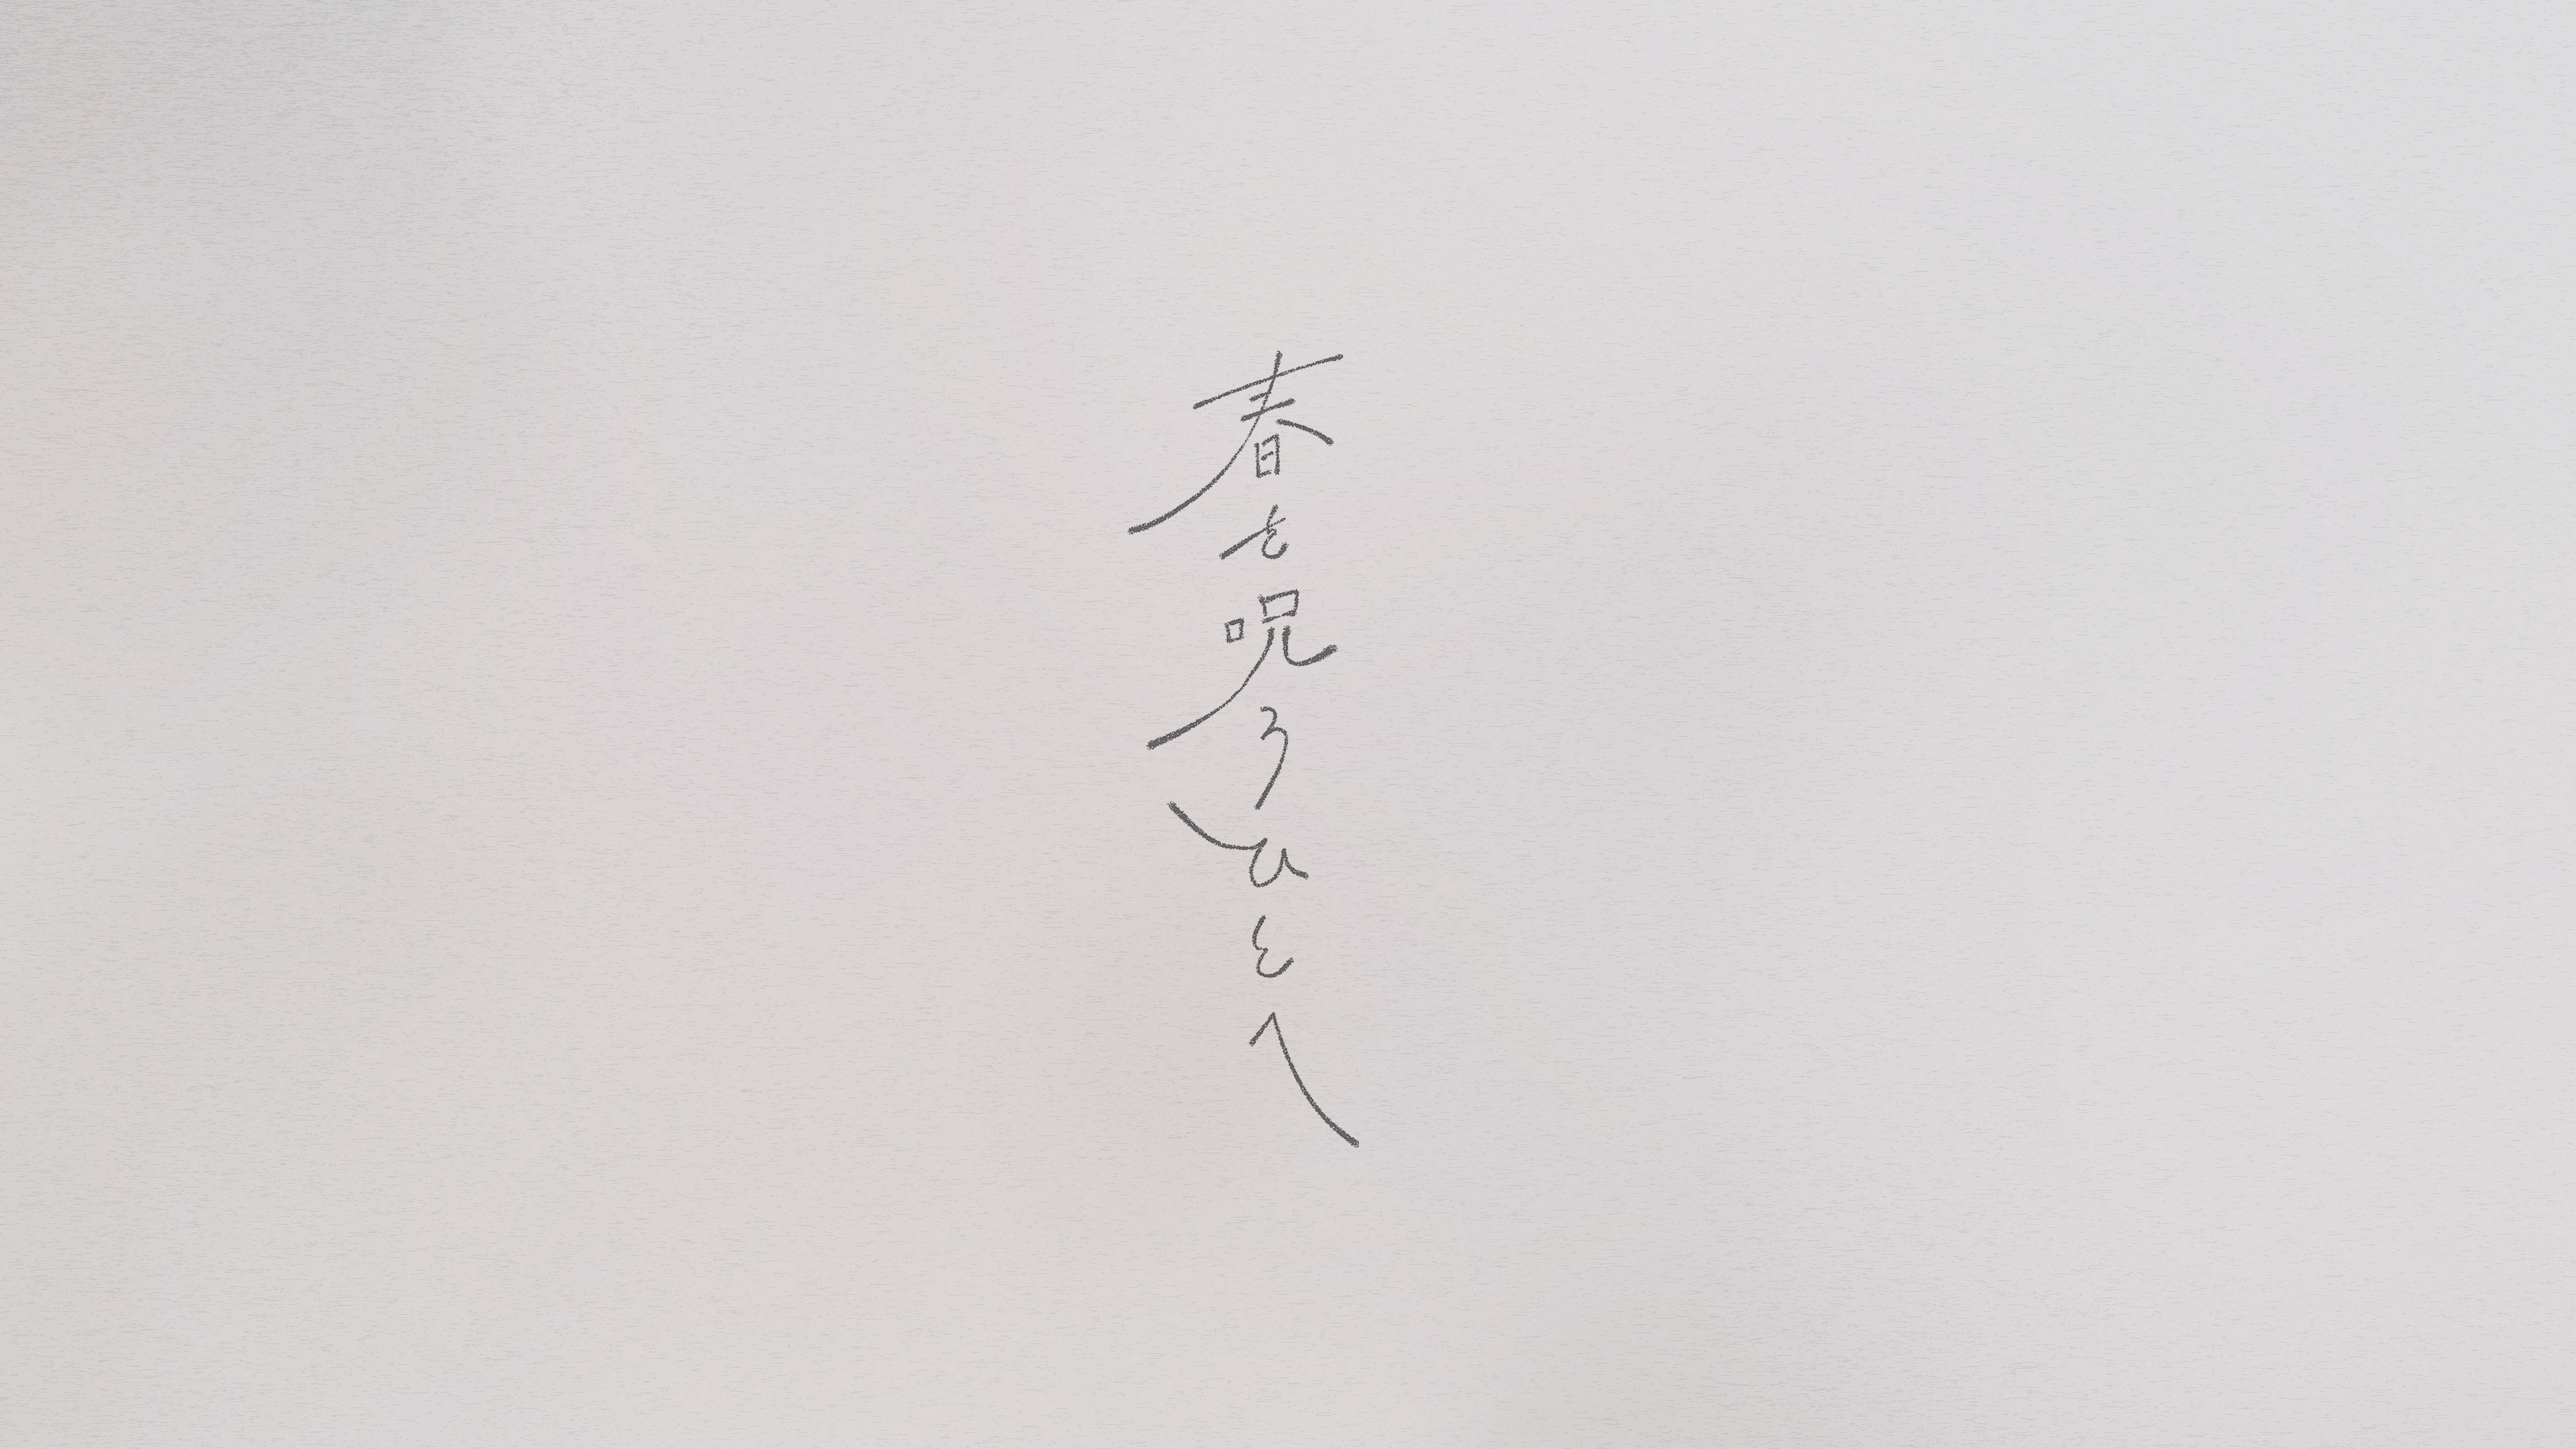 春を呪うひとへ